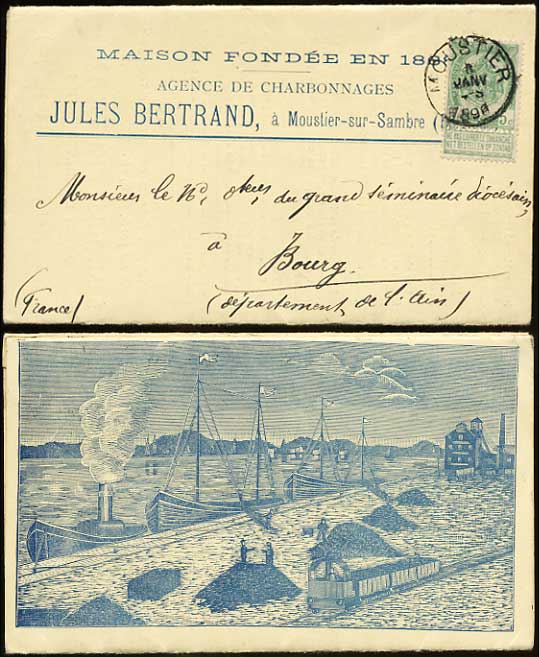 MAISON FONDÉE EN 18
AGENCE DE CHARBONNAGES
JULES BERTRAND, à Moustier-sur-Sambre (
MOUSTIER
JANV
NE PAS LIVRER LE DIMANCHE
NIET BESTELLEN OP ZONDAG
Monsieur le du grand séminaire diocésain,
à
Bourg.
(département de l'Ain)
(France)